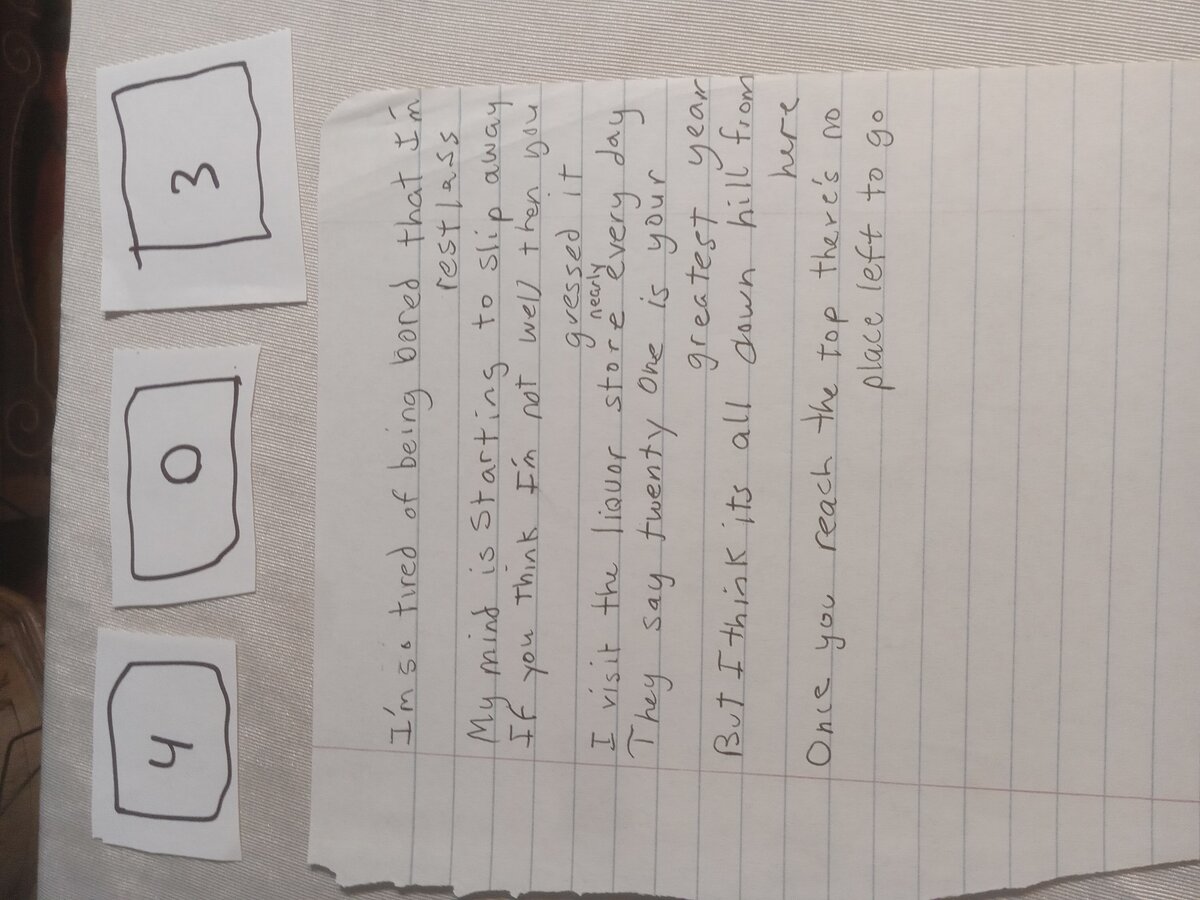 4 0 3
I'm so tired of being bored that I'm
restlass
My mind is Starting to slip away
If you think I'm not well then you
guessed it
nearly
I visit the liquor store every day
They say twenty one is your
greatest year
But I think its all down hill from
here
Once you reach the top there's no
place left to go